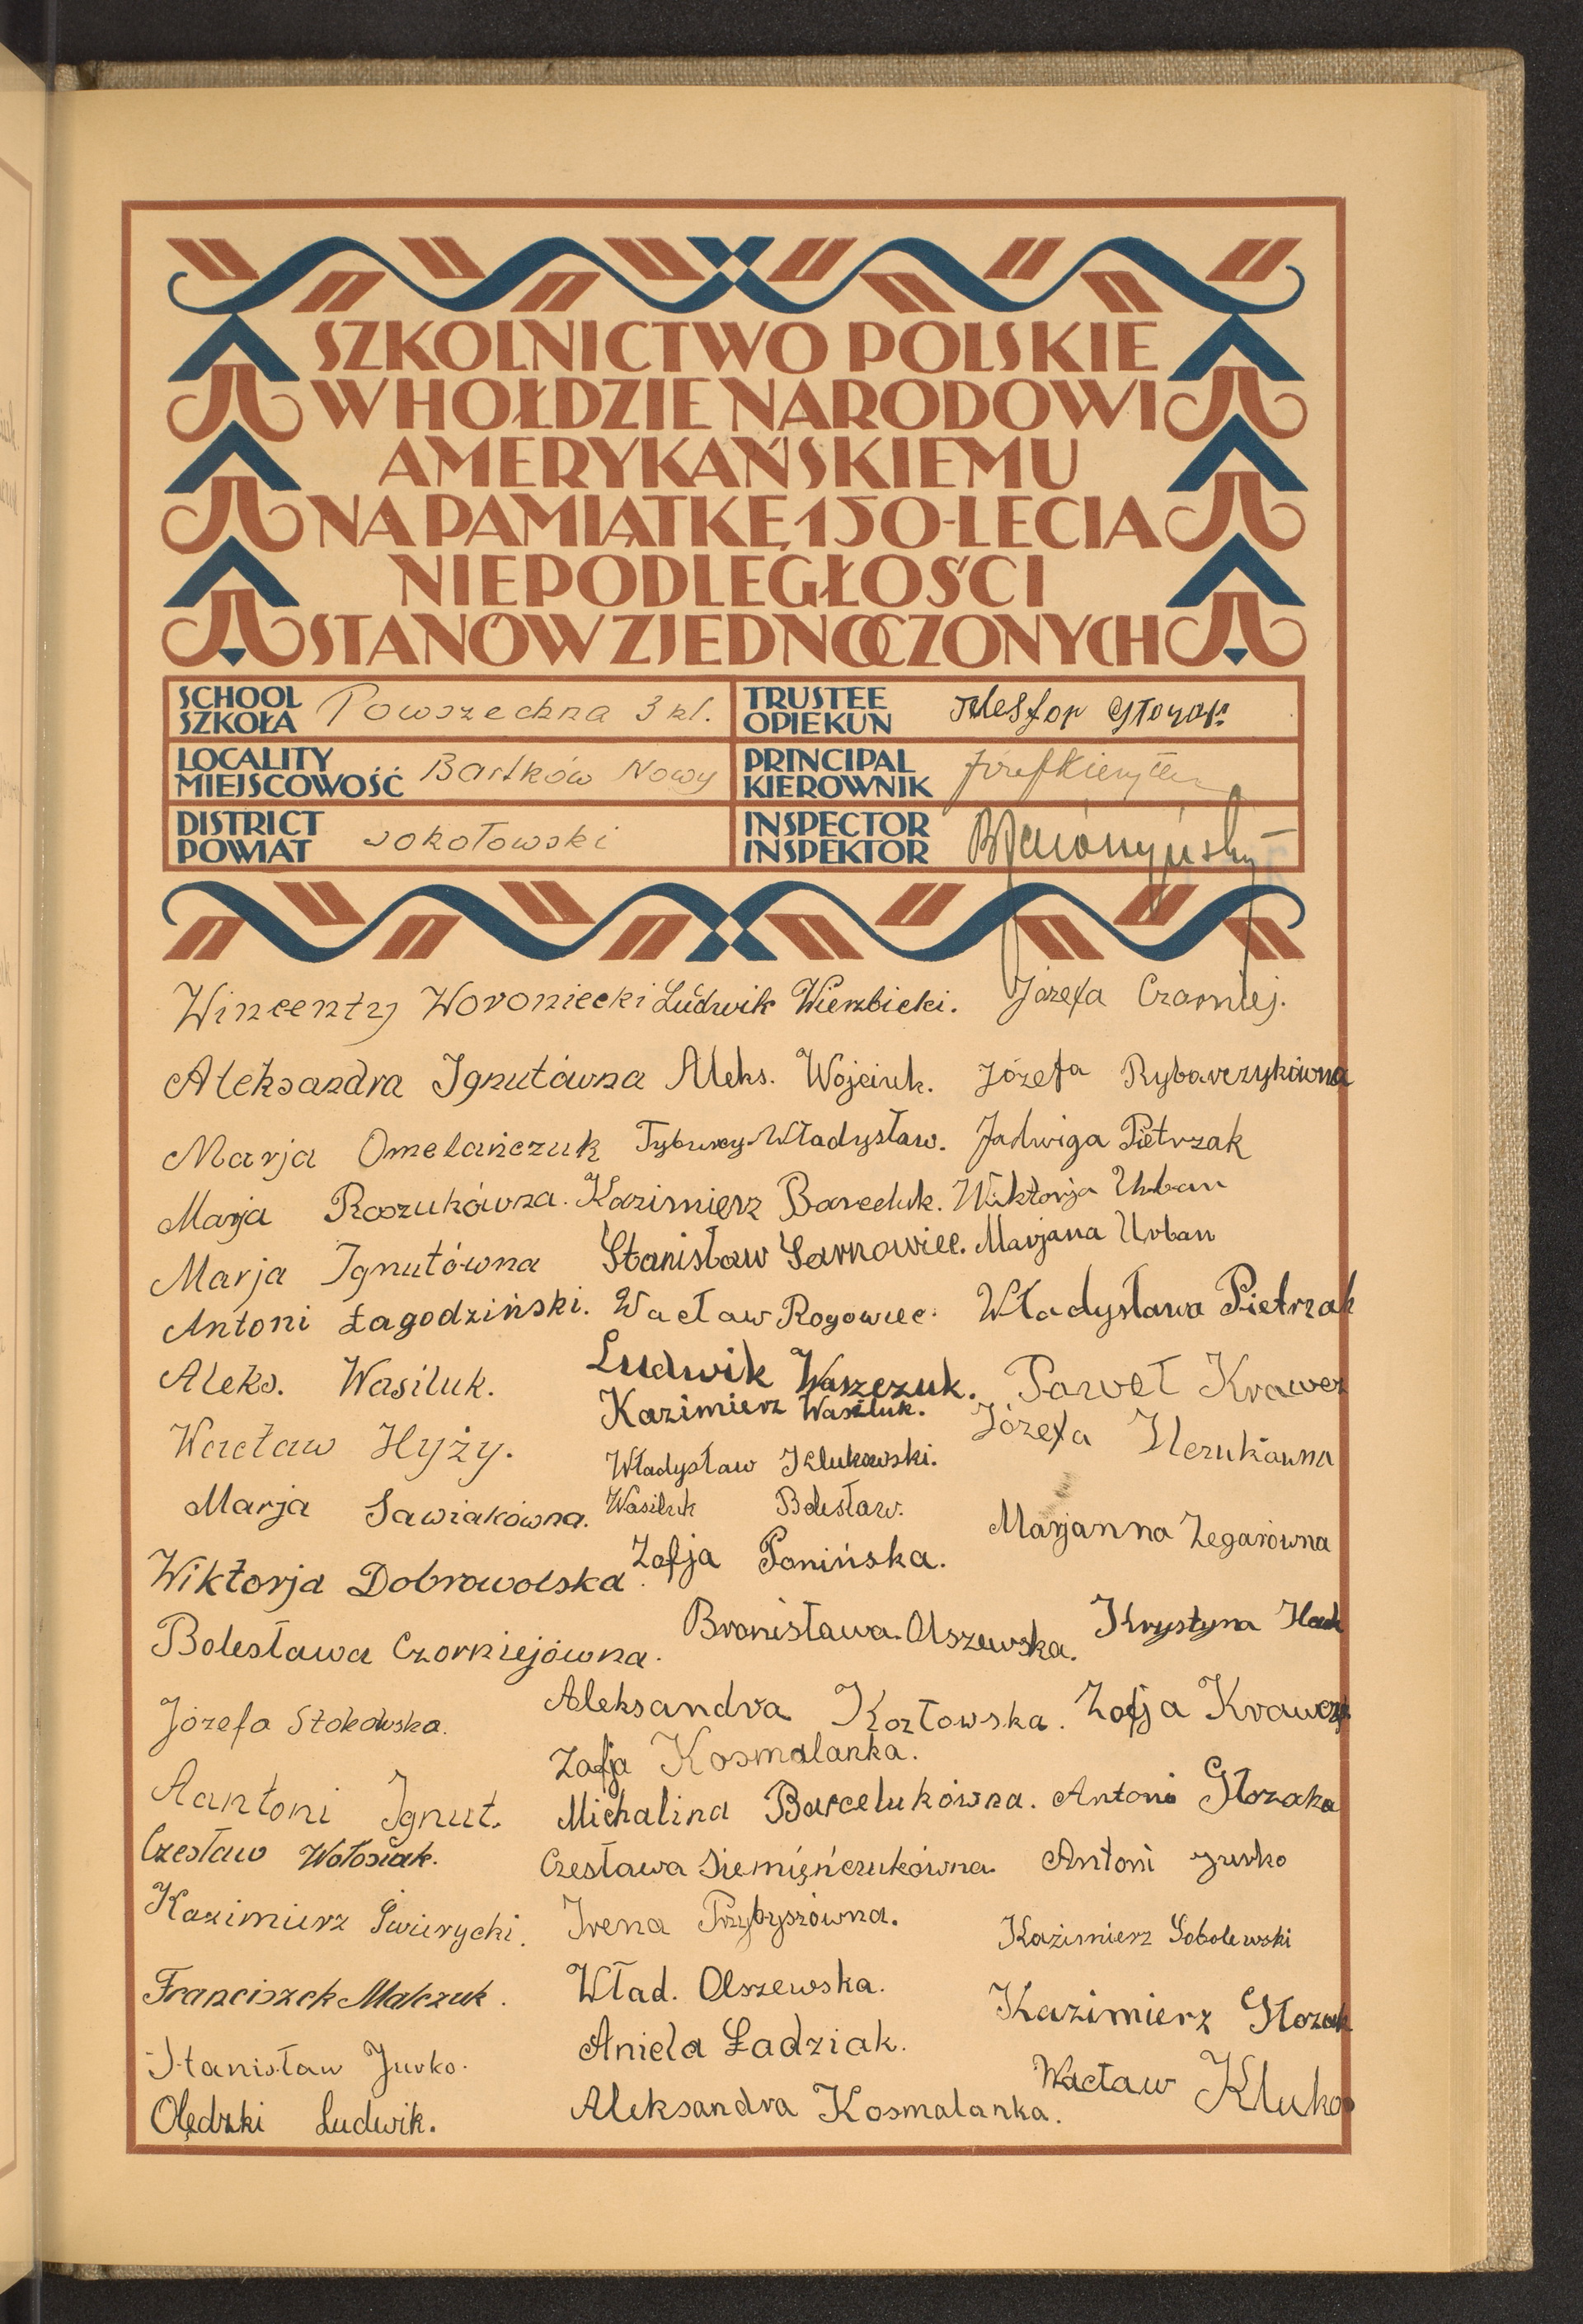 SZKOLNICTWO POLSKIE
W HOŁDZIE NARODOWI
AMERYKAŃSKIEMU
NA PAMIĄTKĘ 150-LECIA
NIEPODLEGŁOŚCI
STANÓW ZJEDNOCZONYCH
SCHOOL
SZKOŁA Powszechna 3 kl.
TRUSTEE
OPIEKUN Telesfor
LOCALITY
MIEJSCOWOŚĆ Bartków Nowy
PRINCIPAL
KIEROWNIK Józef
DISTRICT
POWIAT sokołowski
INSPECTOR
INSPEKTOR
Wincenty Woroniecki Ludwik Wierzbicki. Józefa Czarniej.
Aleksandra Ignutówna Aleks. Wojciuk. Józefa Rybarczykówna
Marja Omelańczuk Tyburcy Władysław. Jadwiga Pietrzak
Marja Roszukówna. Kazimierz Barceluk. Wiktorja Urban
Marja Ignutówna Stanisław Sarnowiec. Marjana Urban
Antoni Łagodziński. Wacław Rogowiec. Władysława Pietrzak
Aleks. Wasiluk. Ludwik Waszczuk. Paweł Krawcz
Kazimierz Wasiluk.
Wacław Hyży. Józefa Ilczukówna
Władysław Klukowski.
Marja Sawiakówna. Wasiluk Bolesław. Marjanna Zegarówna
Wiktorja Dobrowolska. Zofja Ponińska.
Bolesława Czorniejówna. Bronisława Olszewska. Krystyna
Józefa Stokowska. Aleksandra Kozłowska. Zofja Krawczy
Zofja Kosmalanka.
Aantoni Ignut. Michalina Barcelukówna. Antoni
Czesław Wołosiak. Czesława Siemięńczukówna. Antoni Jurko
Kazimierz Świerycki. Irena Przybyszówna. Kazimierz Sobolewski
Franciszek Malczuk. Wład. Olszewska. Kazimierz
Stanisław Jurko. Aniela Ładziak.
Olędzki Ludwik. Aleksandra Kosmalanka. Wacław Kluko